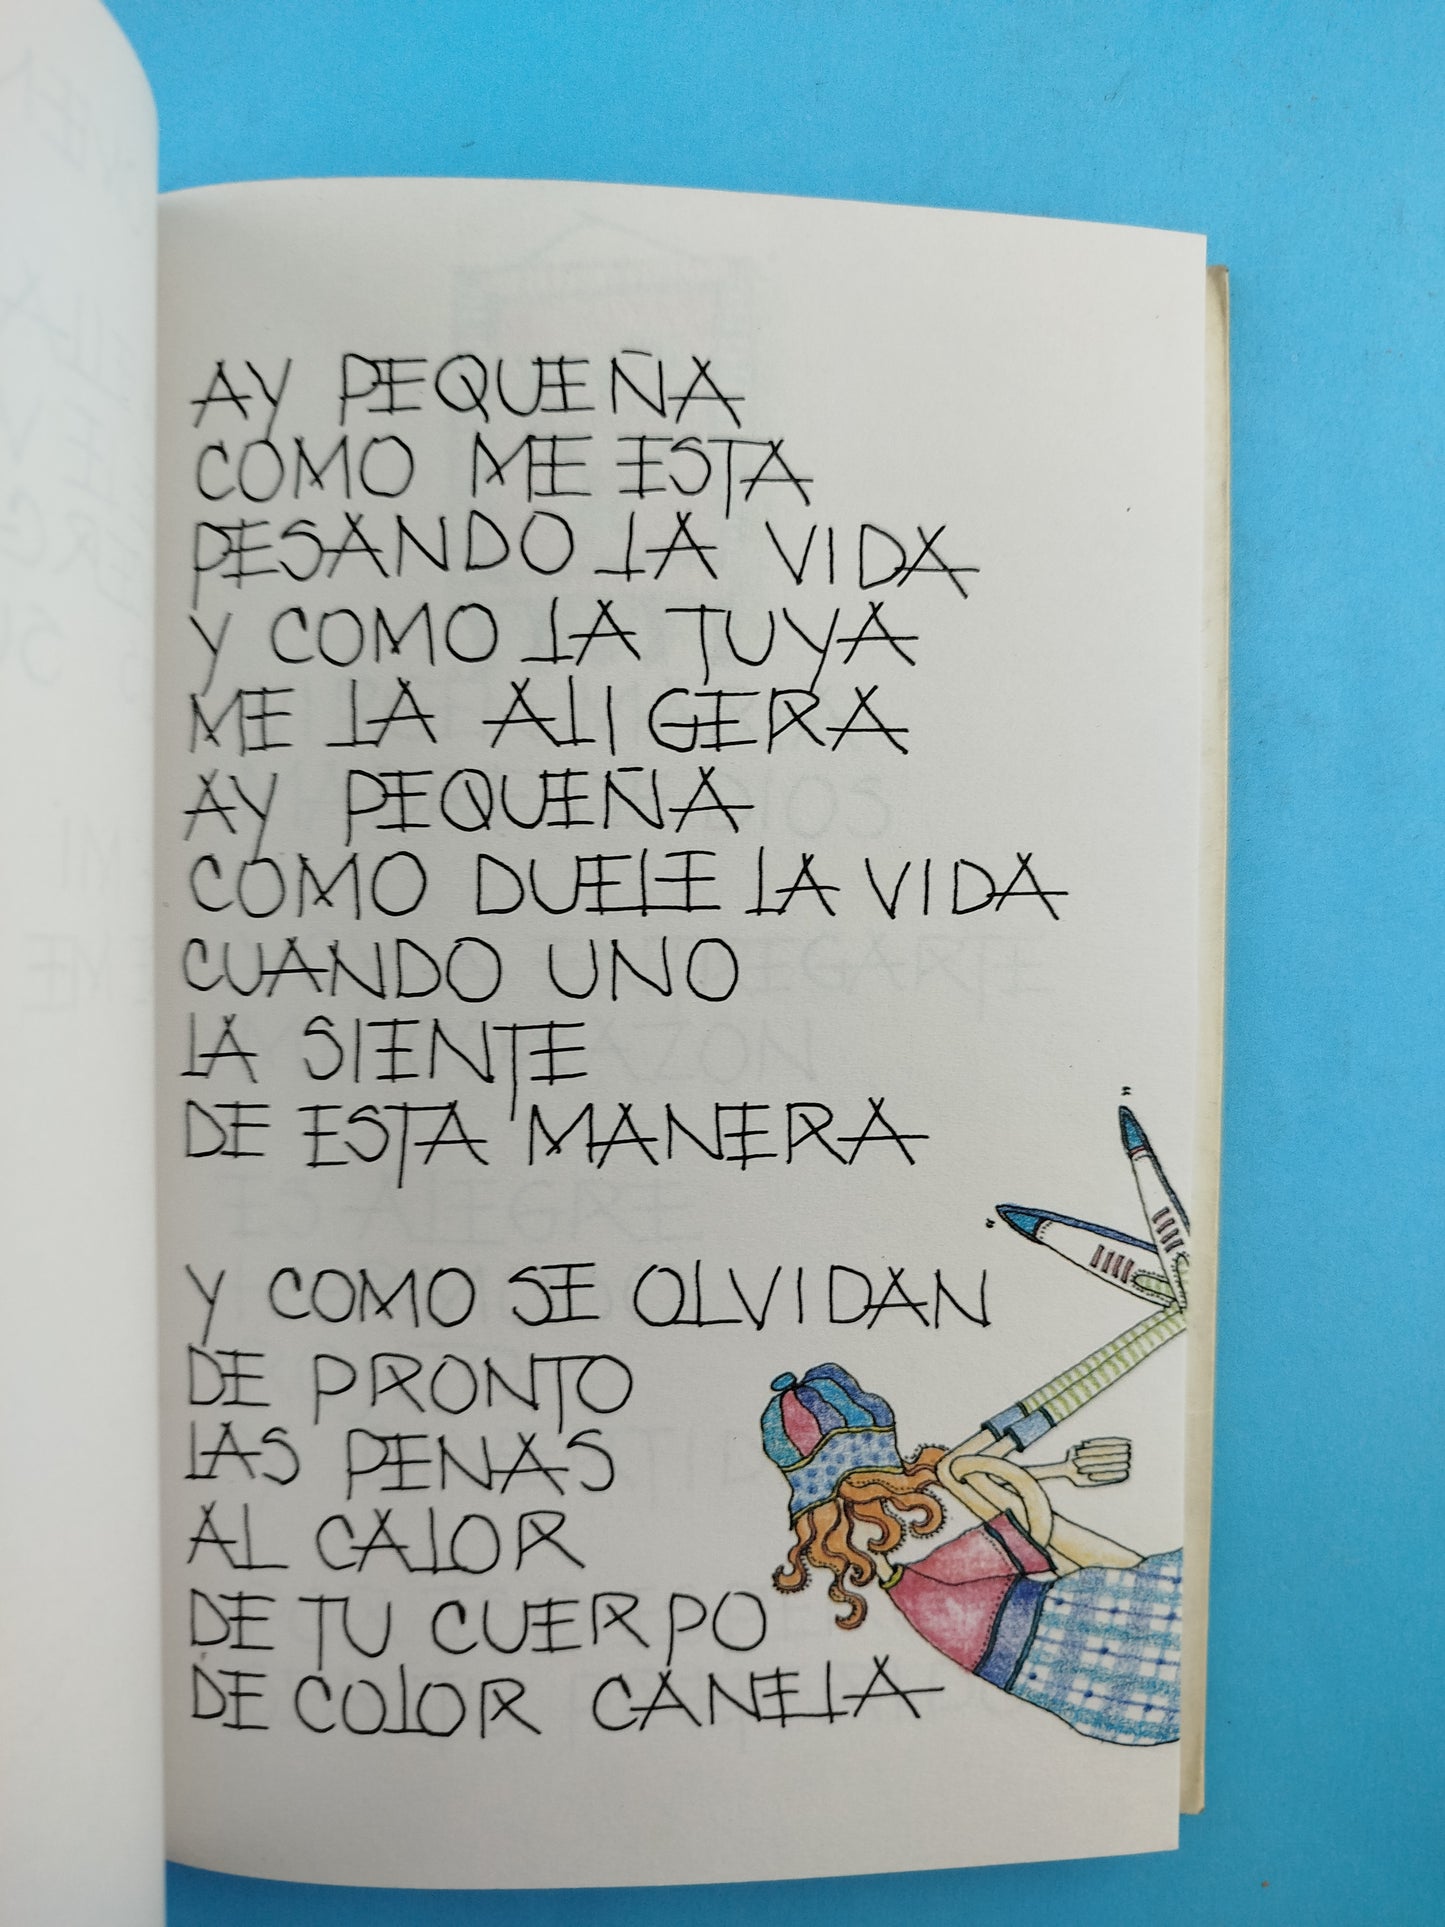 AY PEQUEÑA
COMO ME ESTA
PESANDO LA VIDA
Y COMO LA TUYA
ME LA ALIGERA
AY PEQUEÑA
COMO DUELE LA VIDA
CUANDO UNO
LA SIENTE
DE ESTA MANERA
Y COMO SE OLVIDAN
DE PRONTO
LAS PENAS
AL CALOR
DE TU CUERPO
DE COLOR CANELA